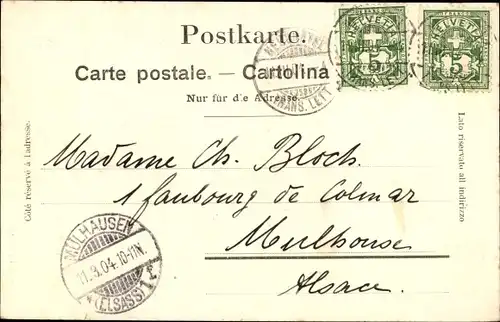 Postkarte.
Carte postale. — Cartolina
Nur für die Adresse.
HELVETIA
5
HELVETIA
5
TRANS. LETT
Côté réservé à l'adresse.
Lato riservato all indirizzo
Madame Ch. Bloch.
1 faubourg de Colmar
Mulhouse
Alsace.
MÜLHAUSEN
11.3.04.10-11N.
(ELSASS) 1